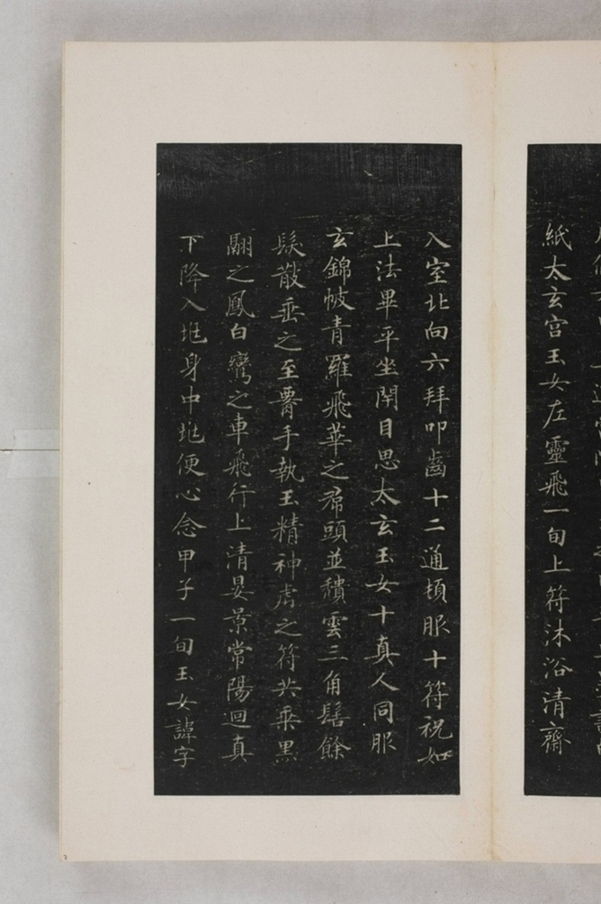 紙太玄宮玉女左靈飛一旬上符沐浴清齋
入室北向六拜叩齒十二通頓服十符祝如
上法畢平坐閇目思太玄玉女十真人同服
玄錦帔青羅飛華之帬頭並穨雲三角髻餘
髮散垂之至署手執玉精神虎之符共乘黑
翮之鳳白鸞之車飛行上清晏景常陽迴真
下降入地身中地便心念甲子一旬玉女諱字